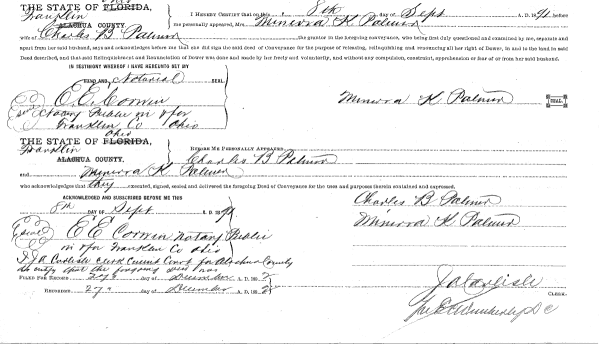 Ohio
THE STATE OF FLORIDA,
Franklin
ALACHUA COUNTY.
I HEREBY CERTIFY that on this 8th day of Sept A. D. 1891 before
me personally appeared, Mrs. Minerva K Palmer
wife of Charles B Palmer the grantor in the foregoing conveyance, who being first duly questioned and examined by me, separate and
apart from her said husband, says and acknowledges before me that she did sign the said deed of Conveyance for the purpose of releasing, relinquishing and renouncing all her right of Dower, in and to the land in said
Deed described, and that said Relinquishment and Renunciation of Dower was done and made by her freely and voluntarily, and without any compulsion, constraint, apprehension or fear of or from her said husband.
IN TESTIMONY WHEREOF I HAVE HEREUNTO SET MY
HAND AND Notarial SEAL
E. E. Corwin
Notary Public in & for
Franklin Co Ohio
Minerva K Palmer SEAL
Ohio
THE STATE OF FLORIDA,
Franklin
ALACHUA COUNTY,
BEFORE ME PERSONALLY APPEARED
Charles B Palmer
and Minerva K. Palmer
who acknowledges that they executed, signed, sealed and delivered the foregoing Deed of Conveyance for the uses and purposes therein contained and expressed.
ACKNOWLEDGED AND SUBSCRIBED BEFORE ME THIS
8th DAY OF Sept A. D. 1891
Charles B Palmer
Minerva K Palmer
Seal E E Corwin Notary Public
in & for Franklin Co Ohio
I J A Carlisle Clerk Circuit Court for Alachua County
do certify that the foregoing deed was
FILED FOR RECORD 27 day of December A. D. 189
RECORDED 27 day of December A. D. 189
J A Carlisle
CLERK.
D C